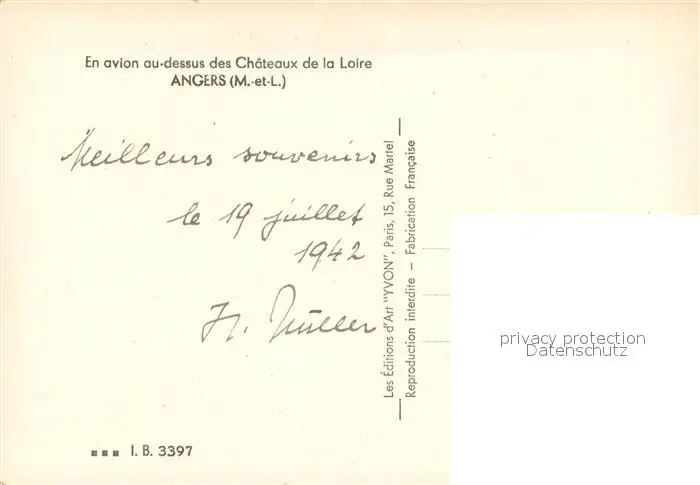 En avion au-dessus des Châteaux de la Loire
ANGERS (M.-et-L.)
Meilleurs souvenirs
le 19 juillet
1942
H. Müller
Les Éditions d'Art "YVON", Paris, 15, Rue Martel
Reproduction interdite — Fabrication Française
privacy protection
Datenschutz
I. B. 3397